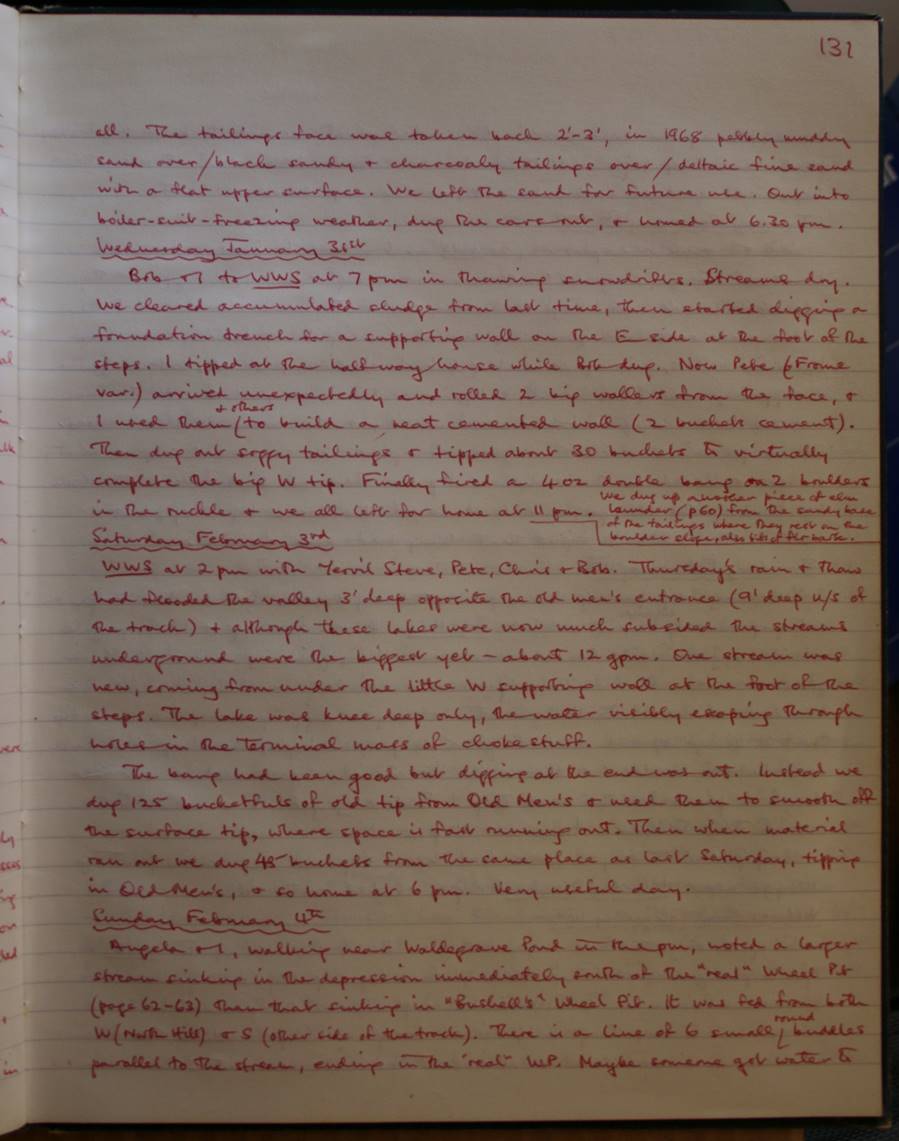 131
all. The tailings face was taken back 2'-3', in 1968 pebbly muddy
sand over/black sandy + charcoaly tailings over/deltaic fine sand
with a flat upper surface. We left the sand for future use. Out into
boiler-suit-freezing weather, dug the cars out, + homed at 6.30 pm.
Wednesday January 31st
Bob + I to WWS at 7 pm in thawing snowdrifts. Streams dry.
We cleared accumulated sludge from last time, then started digging a
foundation trench for a supporting wall on the E side at the foot of the
steps. I tipped at the halfway house while Bob dug. Now Pete (Frome
var.) arrived unexpectedly and rolled 2 big wallers from the face, +
+ others
I used them (to build a neat cemented wall (2 buckets cement).
Then dug out soggy tailings + tipped about 30 buckets to virtually
complete the big W tip. Finally fired a 4 oz double bang on 2 boulders
in the ruckle + we all left for home at 11 pm.
We dug up another piece of elm
launder (p60) from the sandy base
of the tailings where they rest on the
boulder slope, also bits of fir bark.
Saturday February 3rd
WWS at 2 pm with Yeovil Steve, Pete, Chris + Bob. Thursday's rain + thaw
had flooded the valley 3' deep opposite the old men's entrance (9' deep u/s of
the track) + although these lakes were now much subsided the streams
underground were the biggest yet - about 12 gpm. One stream was
new, coming from under the little W supporting wall at the foot of the
steps. The lake was knee deep only, the water visibly escaping through
holes in the terminal mass of choke stuff.
The bang had been good but digging at the end was out. Instead we
dug 125 bucketfuls of old tip from Old Men's + used them to smooth off
the surface tip, where space is fast running out. Then when material
ran out we dug 45 buckets from the same place as last Saturday, tipping
in Old Men's, + so home at 6 pm. Very useful day.
Sunday February 4th
Angela + I, walking near Waldegrave Pond in the pm, noted a larger
stream sinking in the depression immediately south of the "real" Wheel Pit
(page 62-63) than that sinking in "Bushell's" Wheel Pit. It was fed from both
W (North Hill) + S (other side of the track). There is a line of 6 small round buddles
parallel to the stream, ending in the "real" W.P. Maybe someone got water to